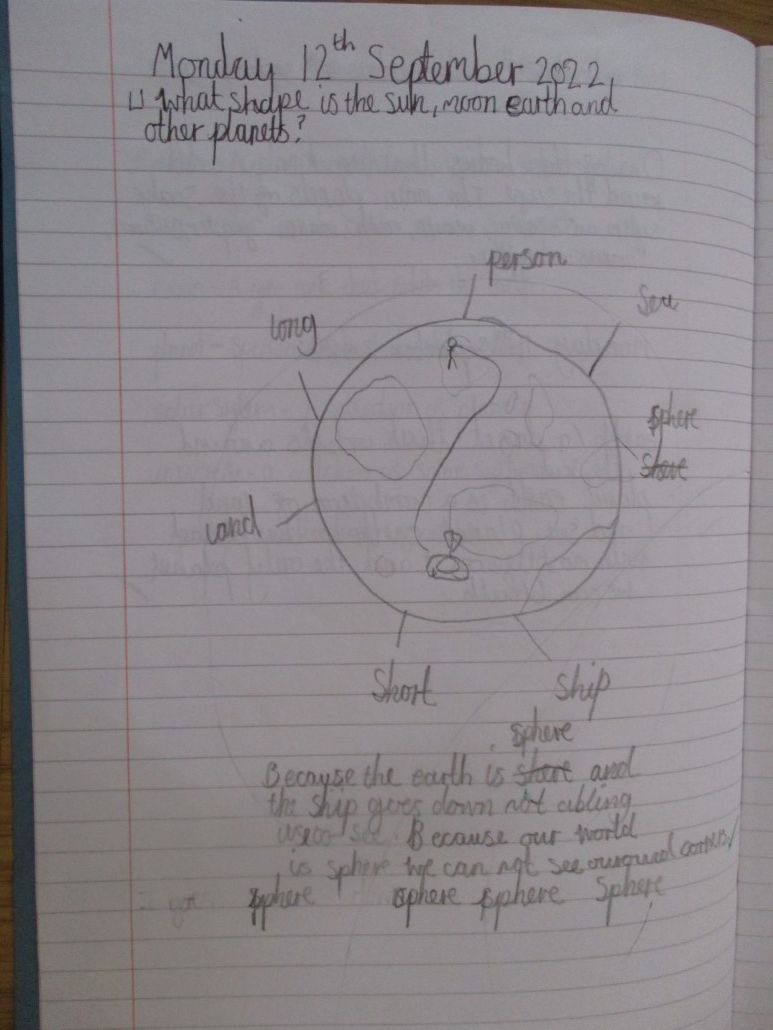 Monday 12th September 2022
LI What shape is the sun, moon earth and
other planets?
person
Sea
long
sphere
land
Short
ship
sphere
Because the earth is and
the ship goes down not abling
us to see. Because our world
is sphere we can not see corners
sphere sphere sphere Sphere